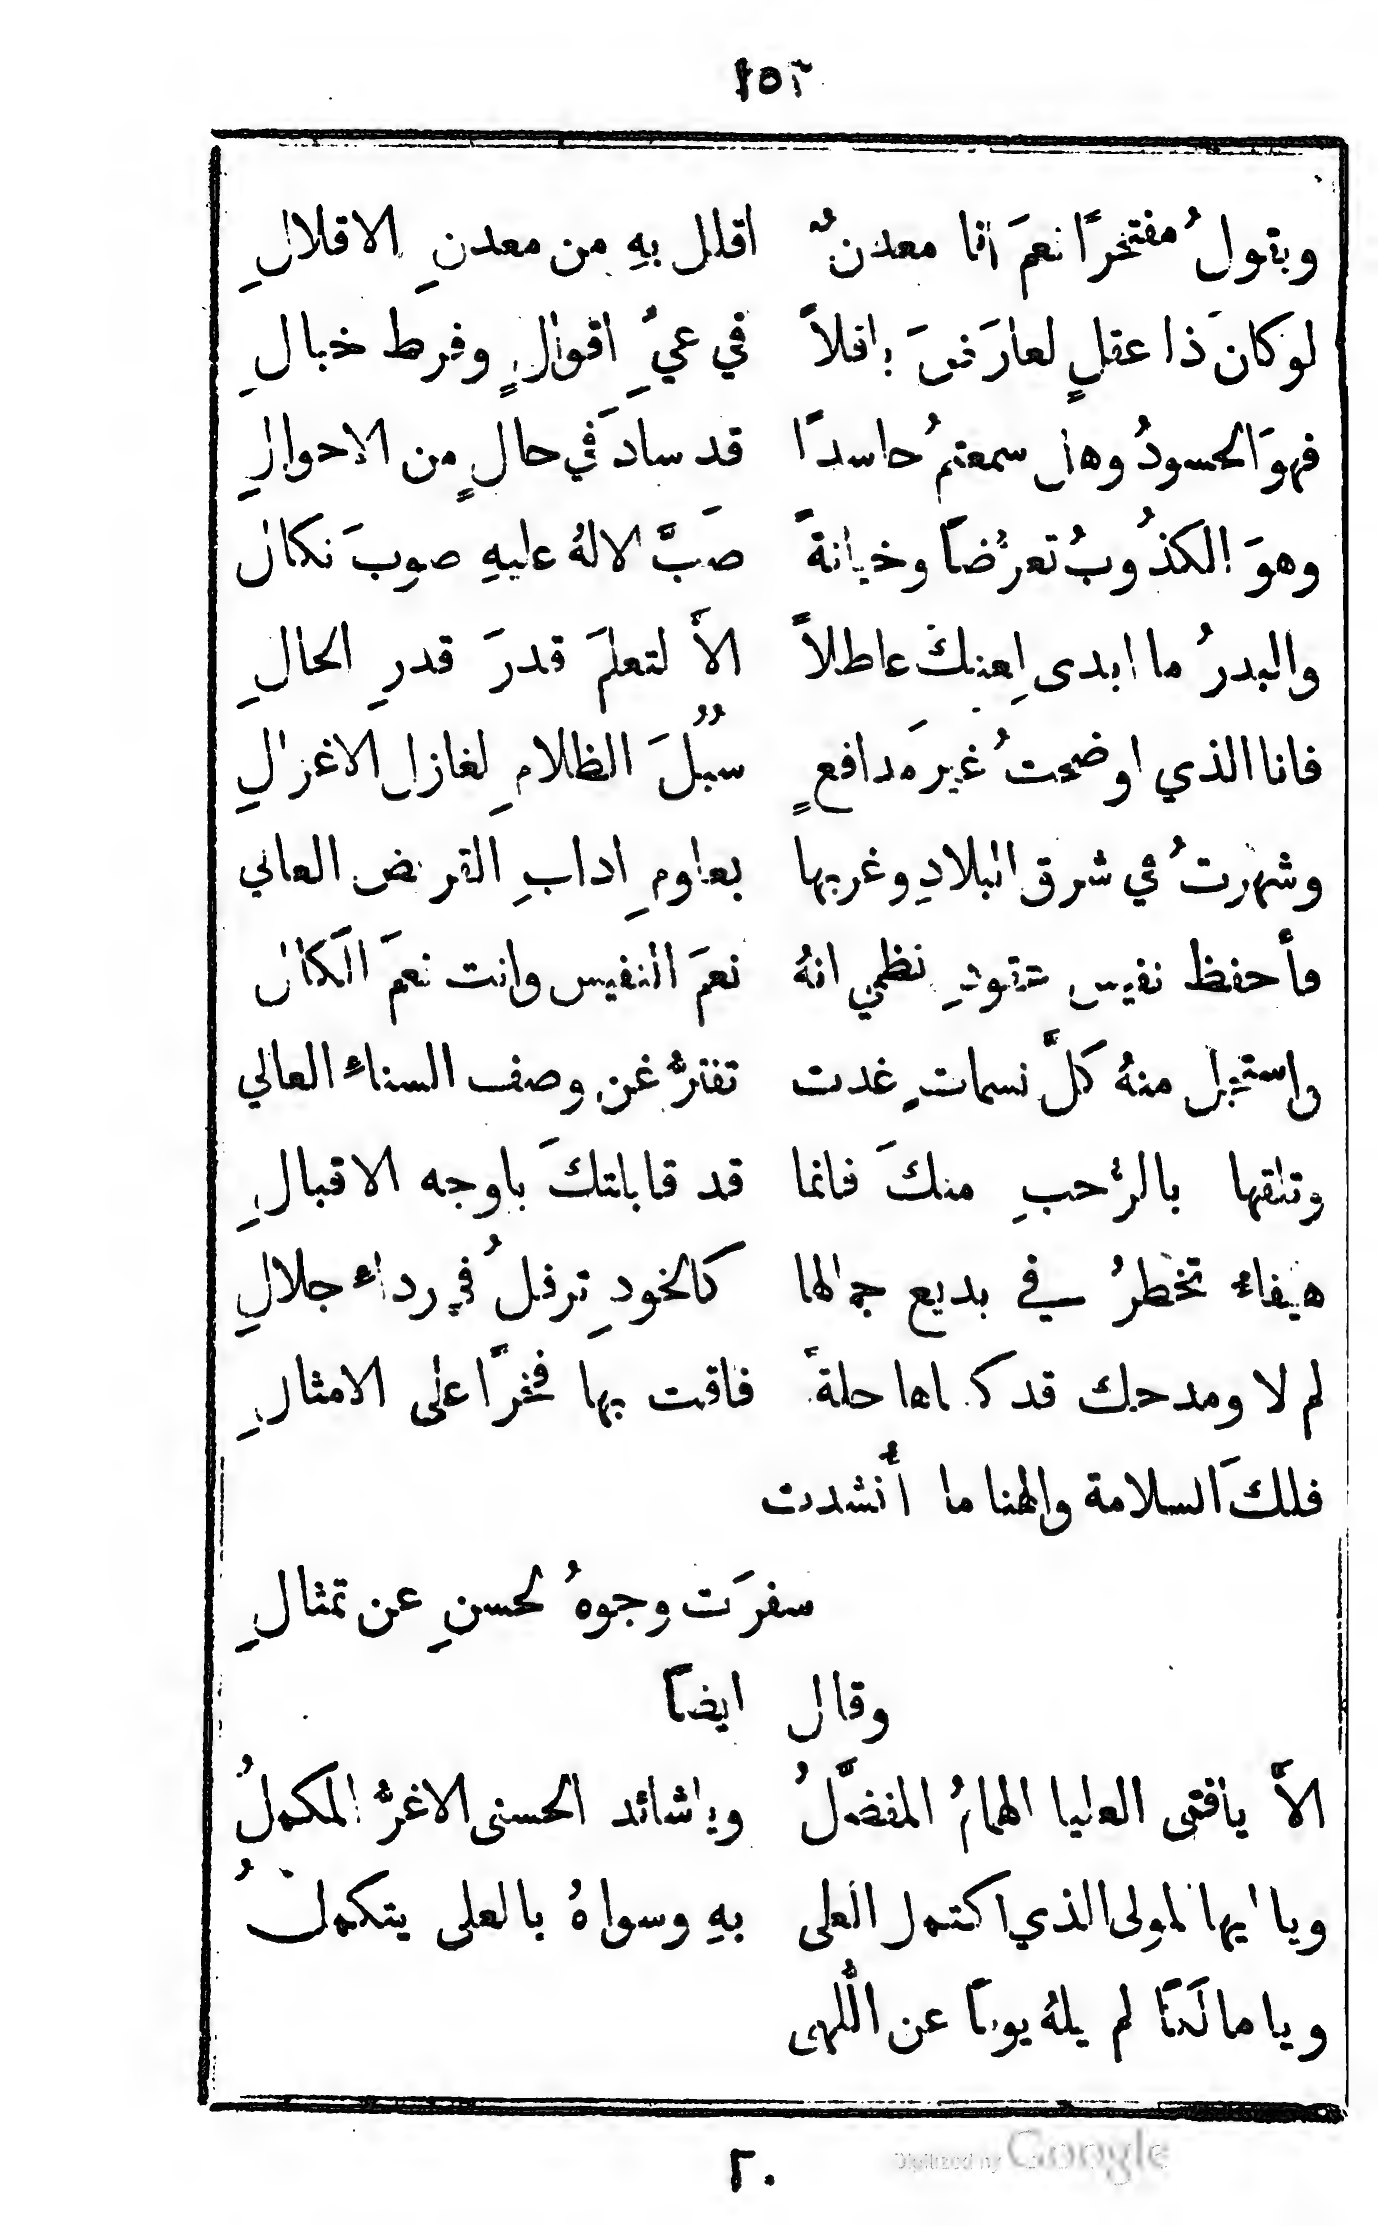 ١٥٣
ويقولُ مفتخرًا نعمَ أنا معدنٌ اقلل بهِ من معدنِ الاقلالِ
لو كانَ ذا عقلٍ لعارَضَ باقلاً في عيِّ اقوالٍ وفرط خبالِ
فهوَ الحسودُ وهل سمعتمُ حاسدًا قد سادَ في حالٍ من الاحوالِ
وهوَ الكذُوبُ تعرُّضاً وخيانةً صَبَّ لالهُ عليهِ صوبَ نكال
والبدرُ ما ابدى لِعنيكَ عاطلاً الاَّ لتعلمَ قدرَ قدرِ الحالِ
فانا الذي اوضحتُ غيرَ مدافعٍ سُبُلَ الظلامِ لغازل الاغزالِ
وشهرتُ في شرق البلادِ وغربها بعلومِ ادابِ القريض العالي
فأحفظ نفيس عقودِ نظمي انهُ نعمَ النفيس وانت نعمَ الكال
واستجل منهُ كلَّ نسماتٍ غدت تفترُّ عن وصف السناء العالي
وتلقها بالرُّحبِ منكَ فانما قد قابلتكَ باوجه الاقبالِ
هيفاء تخطرُ في بديع جمالها كالخودِ ترفلُ في رداء جلالِ
لم لا ومدحك قد كساها حلةً فاقت بها فخرًا على الامثالِ
فلكَ السلامة والهنا ما أُنشدت
سفرَت وجوهُ لحسنِ عن تمثالِ
وقال ايضاً
الاَّ يافتى العليا الهمامُ المفضَّلُ ويا شائد الحسنى الاغرُّ المكملُ
ويا ايها لمولى الذي اكتمل العلى بهِ وسواهُ بالعلى يتكملُ
ويا مالكًا لم يلهُ يومًا عن اللُّهى
٢٠
Digitized by Google